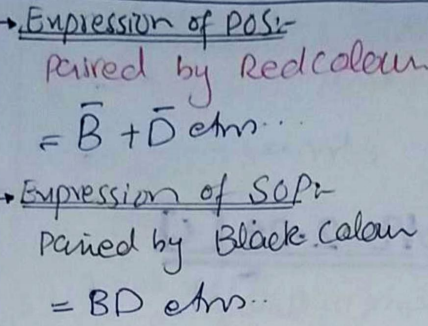 → Expression of POS:-
Paired by Redcolour
= B̅ + D̅ Ans...
→ Expression of SOP:-
Paired by Black Colour
= BD Ans..